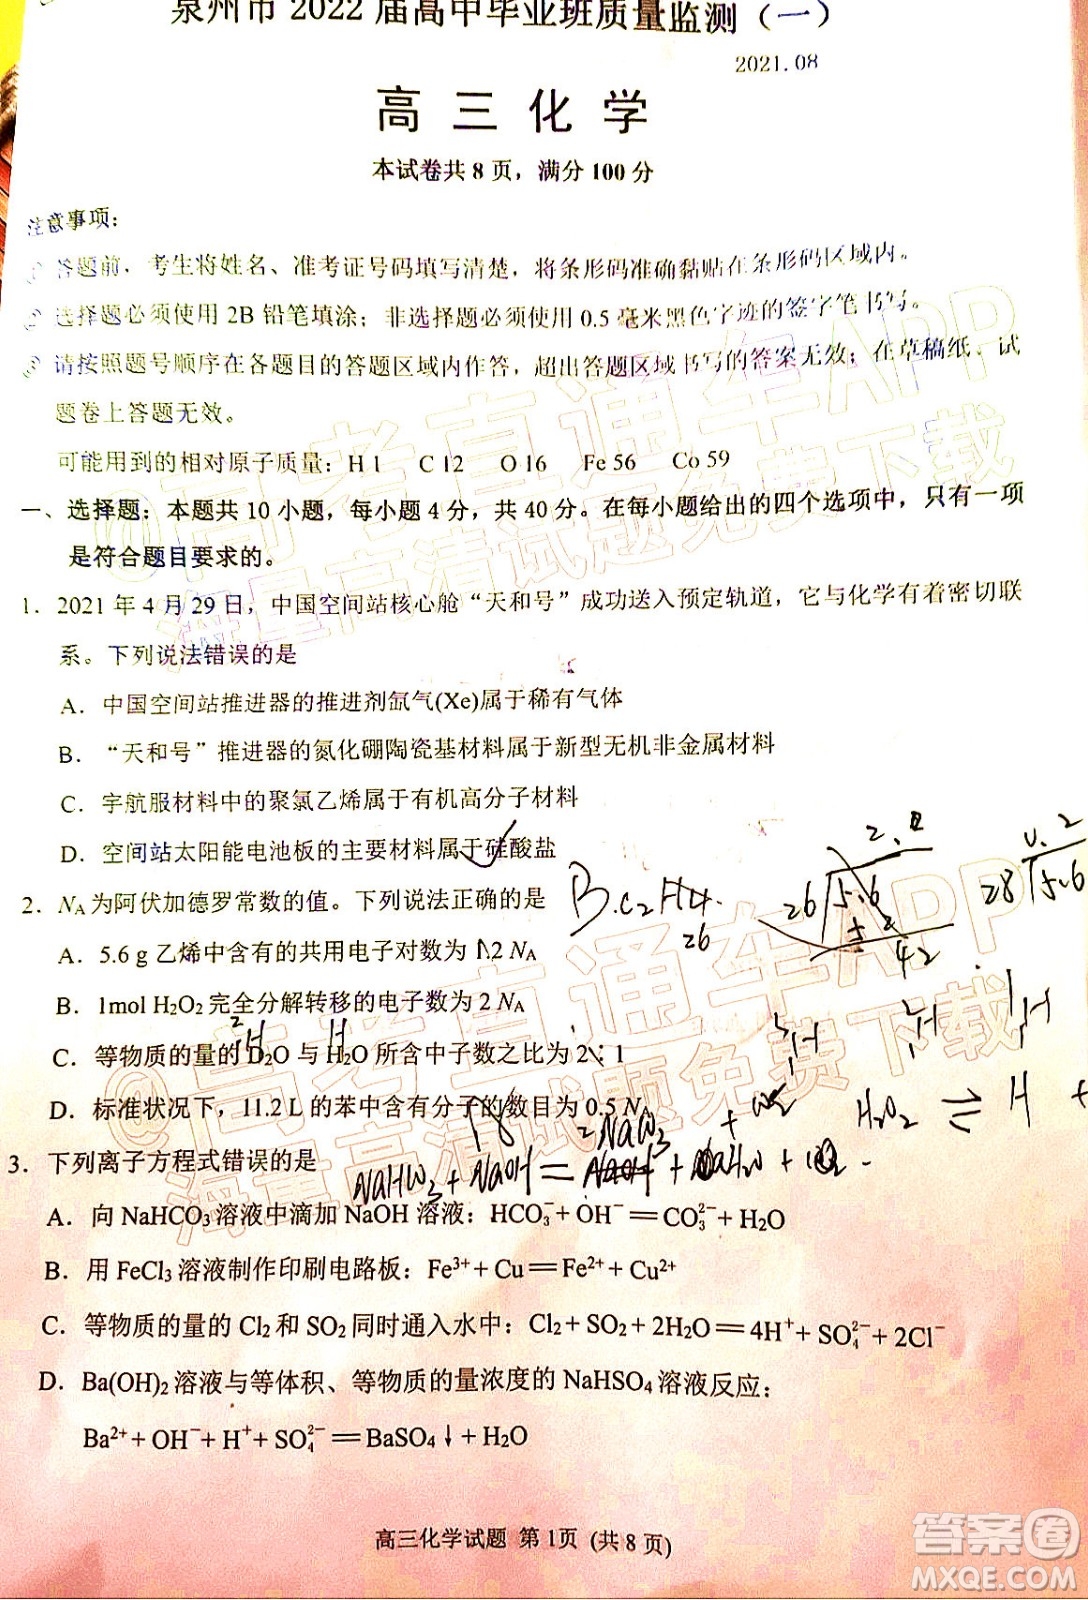 泉州市 2022 届高中毕业班质量监测（一）
2021.08
高 三 化 学
本试卷共 8 页，满分 100 分
注意事项：
答题前，考生将姓名、准考证号码填写清楚，将条形码准确黏贴在条形码区域内。
选择题必须使用 2B 铅笔填涂；非选择题必须使用 0.5 毫米黑色字迹的签字笔书写。
请按照题号顺序在各题目的答题区域内作答，超出答题区域书写的答案无效；在草稿纸、试
题卷上答题无效。
可能用到的相对原子质量：H 1 C 12 O 16 Fe 56 Co 59
一、选择题：本题共 10 小题，每小题 4 分，共 40 分。在每小题给出的四个选项中，只有一项
是符合题目要求的。
1．2021 年 4 月 29 日，中国空间站核心舱“天和号”成功送入预定轨道，它与化学有着密切联
系。下列说法错误的是
A．中国空间站推进器的推进剂氙气(Xe)属于稀有气体
B．“天和号”推进器的氮化硼陶瓷基材料属于新型无机非金属材料
C．宇航服材料中的聚氯乙烯属于有机高分子材料
D．空间站太阳能电池板的主要材料属于硅酸盐
2．N_A 为阿伏加德罗常数的值。下列说法正确的是
B. C₂H₄.
26
2.2
26 5.6
5 2
42
0.2
28 5.6
A．5.6 g 乙烯中含有的共用电子对数为 1.2 N_A
B．1mol H₂O₂ 完全分解转移的电子数为 2 N_A
C．等物质的量的 D₂O 与 H₂O 所含中子数之比为 2∶1
D．标准状况下，11.2 L 的苯中含有分子的数目为 0.5 N_A
H₂O₂ ⇌ H +
18
3．下列离子方程式错误的是
A．向 NaHCO₃ 溶液中滴加 NaOH 溶液：HCO₃⁻ + OH⁻ ═ CO₃²⁻ + H₂O
B．用 FeCl₃ 溶液制作印刷电路板：Fe³⁺ + Cu ═ Fe²⁺ + Cu²⁺
C．等物质的量的 Cl₂ 和 SO₂ 同时通入水中：Cl₂ + SO₂ + 2H₂O ═ 4H⁺ + SO₄²⁻ + 2Cl⁻
D．Ba(OH)₂ 溶液与等体积、等物质的量浓度的 NaHSO₄ 溶液反应：
Ba²⁺ + OH⁻ + H⁺ + SO₄²⁻ ═ BaSO₄↓ + H₂O
高三化学试题 第 1页 (共 8 页)
@高考直通车APP
海量高清试题免费下载
@高考直通车APP
海量高清试题免费下载
答案圈
MXQE.COM